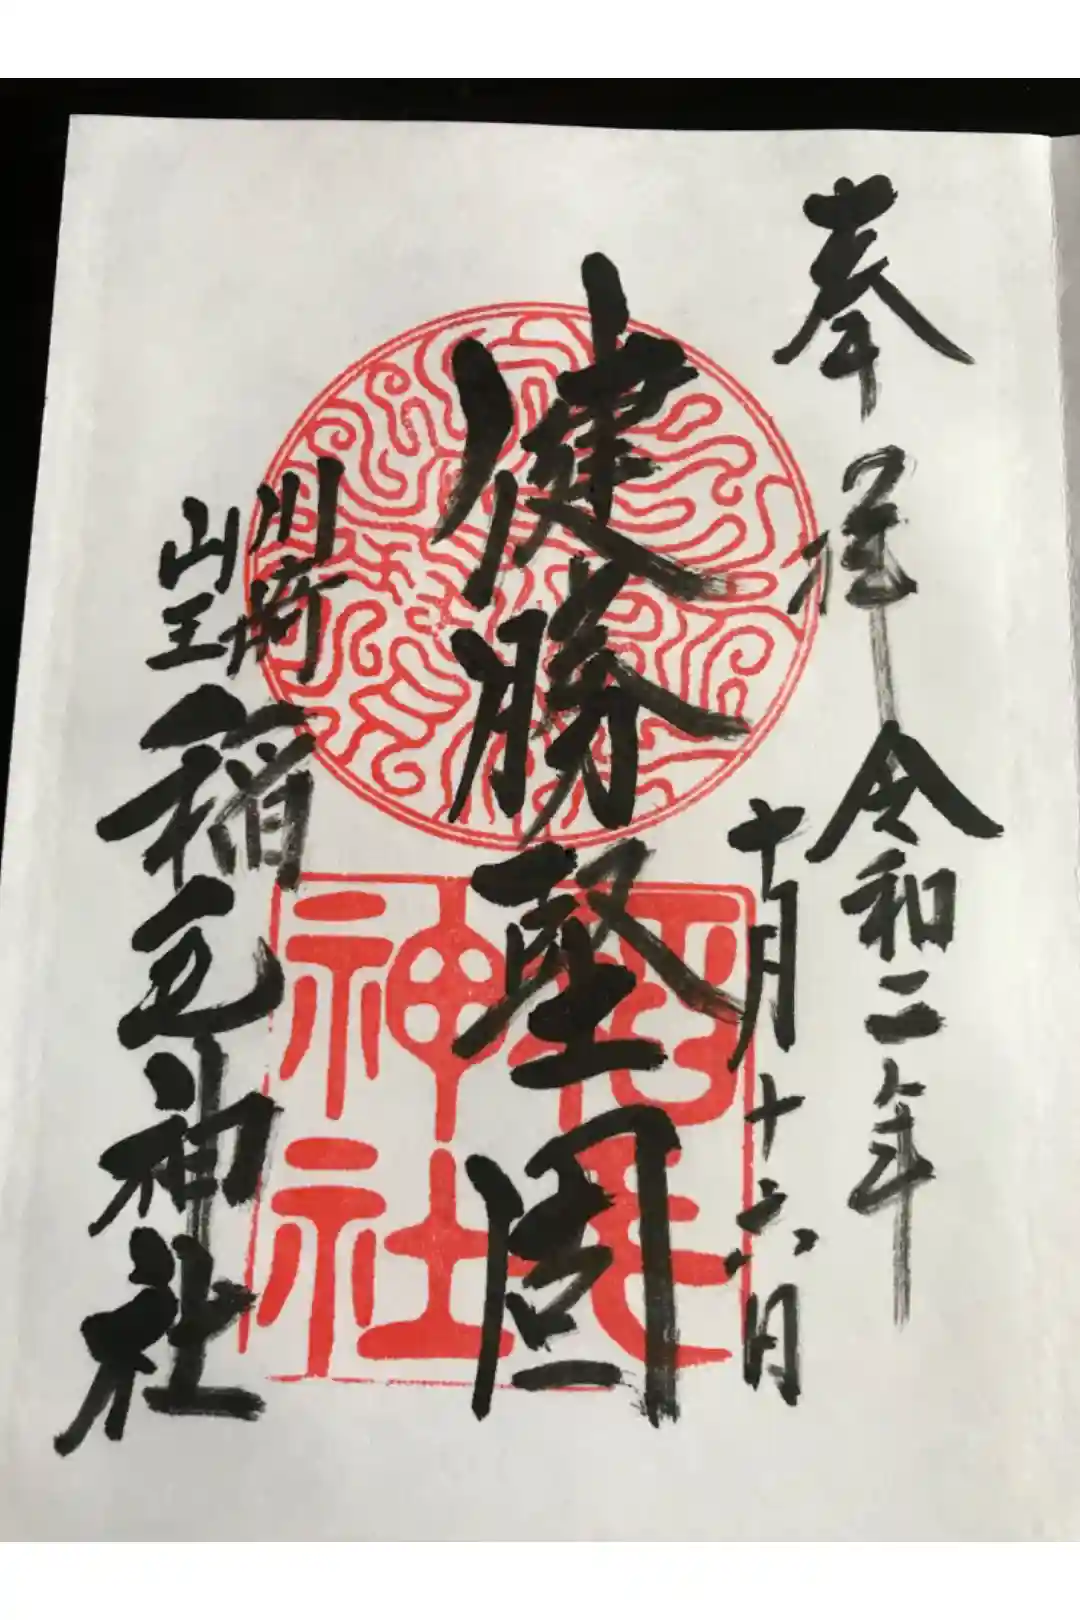 奉拝
令和二年
十月十六日
健勝堅固
川崎
山王
稲毛神社
稲毛
神社